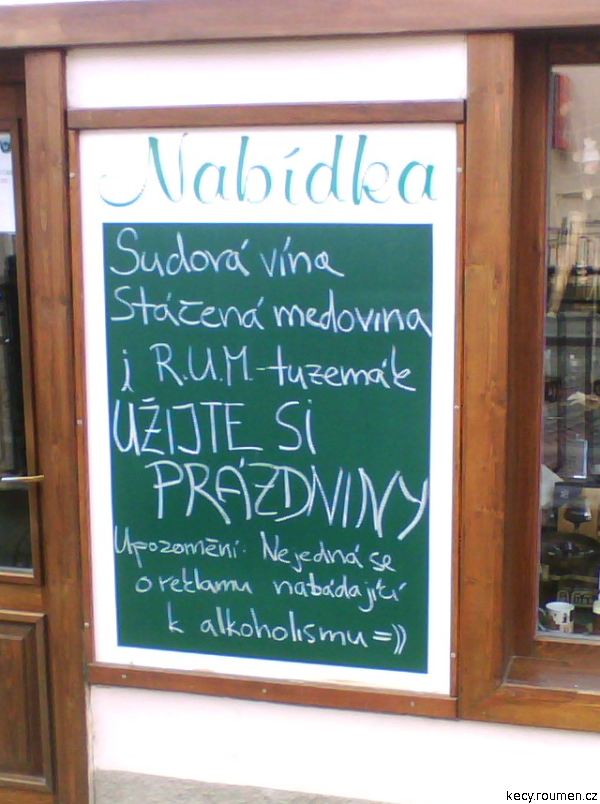 Nabídka
Sudová vína
Stáčená medovina
i R.U.M.-tuzemák
UŽIJTE SI
PRÁZDNINY
Upozornění: Nejedná se
o reklamu nabádající
k alkoholismu =))
kecy.roumen.cz